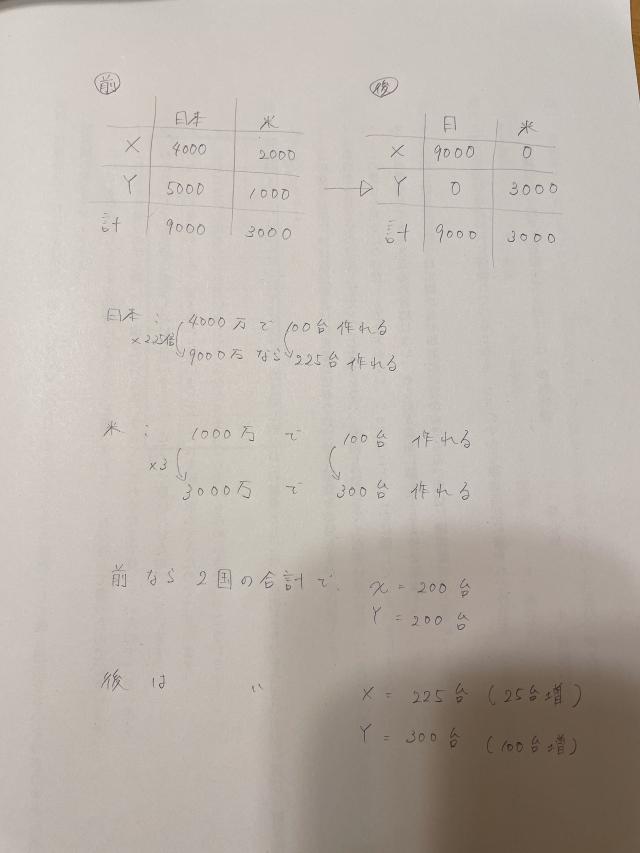 前 後
日本 米
X 4000 2000
Y 5000 1000
計 9000 3000
日 米
X 9000 0
Y 0 3000
計 9000 3000
日本: 4000万で 100台 作れる
×2.25倍
9000万 なら 225台 作れる
米: 1000万 で 100台 作れる
×3
3000万 で 300台 作れる
前 なら 2国の合計で、 x = 200台
Y = 200台
後 は 〃 X = 225台 (25台増)
Y = 300台 (100台増)